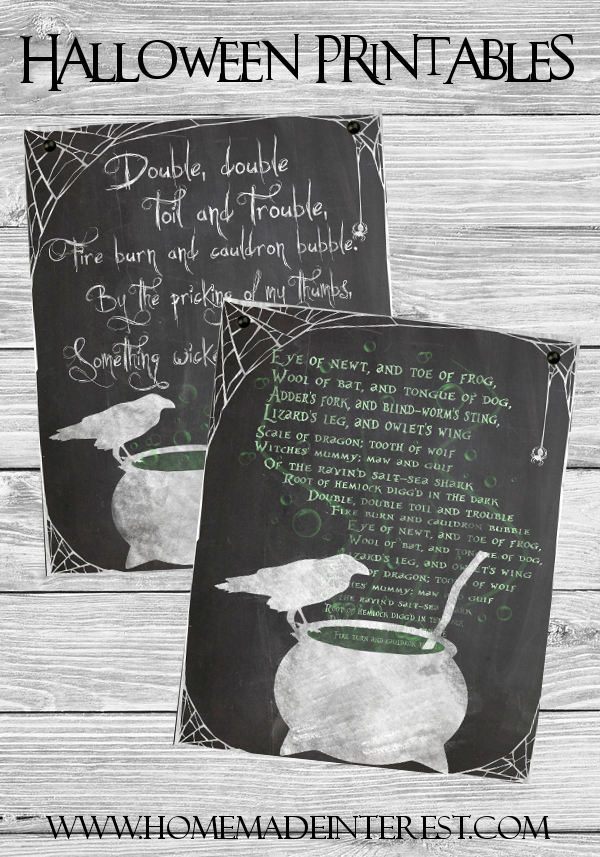 Halloween Printables
Double, double
Toil and Trouble,
Fire burn and cauldron bubble.
By the pricking of my Thumbs,
Something wicke
Eye of newt, and toe of frog,
Wool of bat, and tongue of dog,
Adder's fork, and blind-worm's sting,
Lizard's leg, and owlet's wing
Scale of dragon; tooth of wolf
Witches' mummy; maw and gulf
Of the ravin'd salt-sea shark
Root of hemlock digg'd in the dark
Double, double toil and trouble
Fire burn and cauldron bubble
Eye of newt, and toe of frog,
Wool of bat, and tongue of dog,
Lizard's leg, and owlet's wing
of dragon; tooth of wolf
mummy; maw gulf
the ravin'd salt-sea
Root of hemlock digg'd in
Fire burn and cauldron
www.homemadeinterest.com